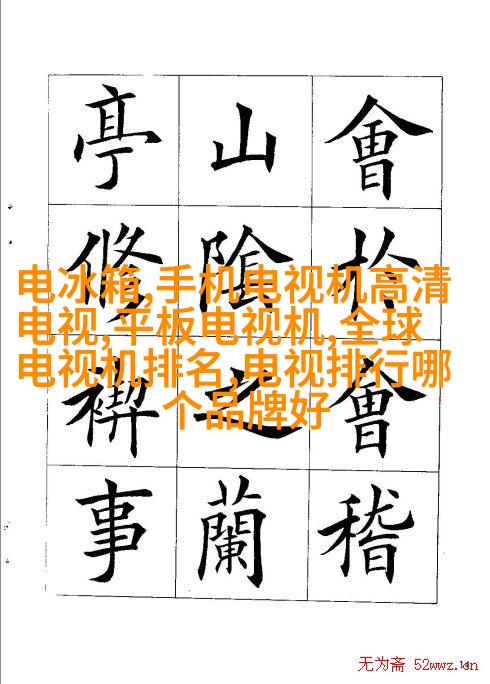 會於會稽
山陰之蘭
亭修禊事
电冰箱,手机电视机高清
电视,平板电视机,全球
电视机排名,电视排行哪
个品牌好
无为斋 52wwz.cn